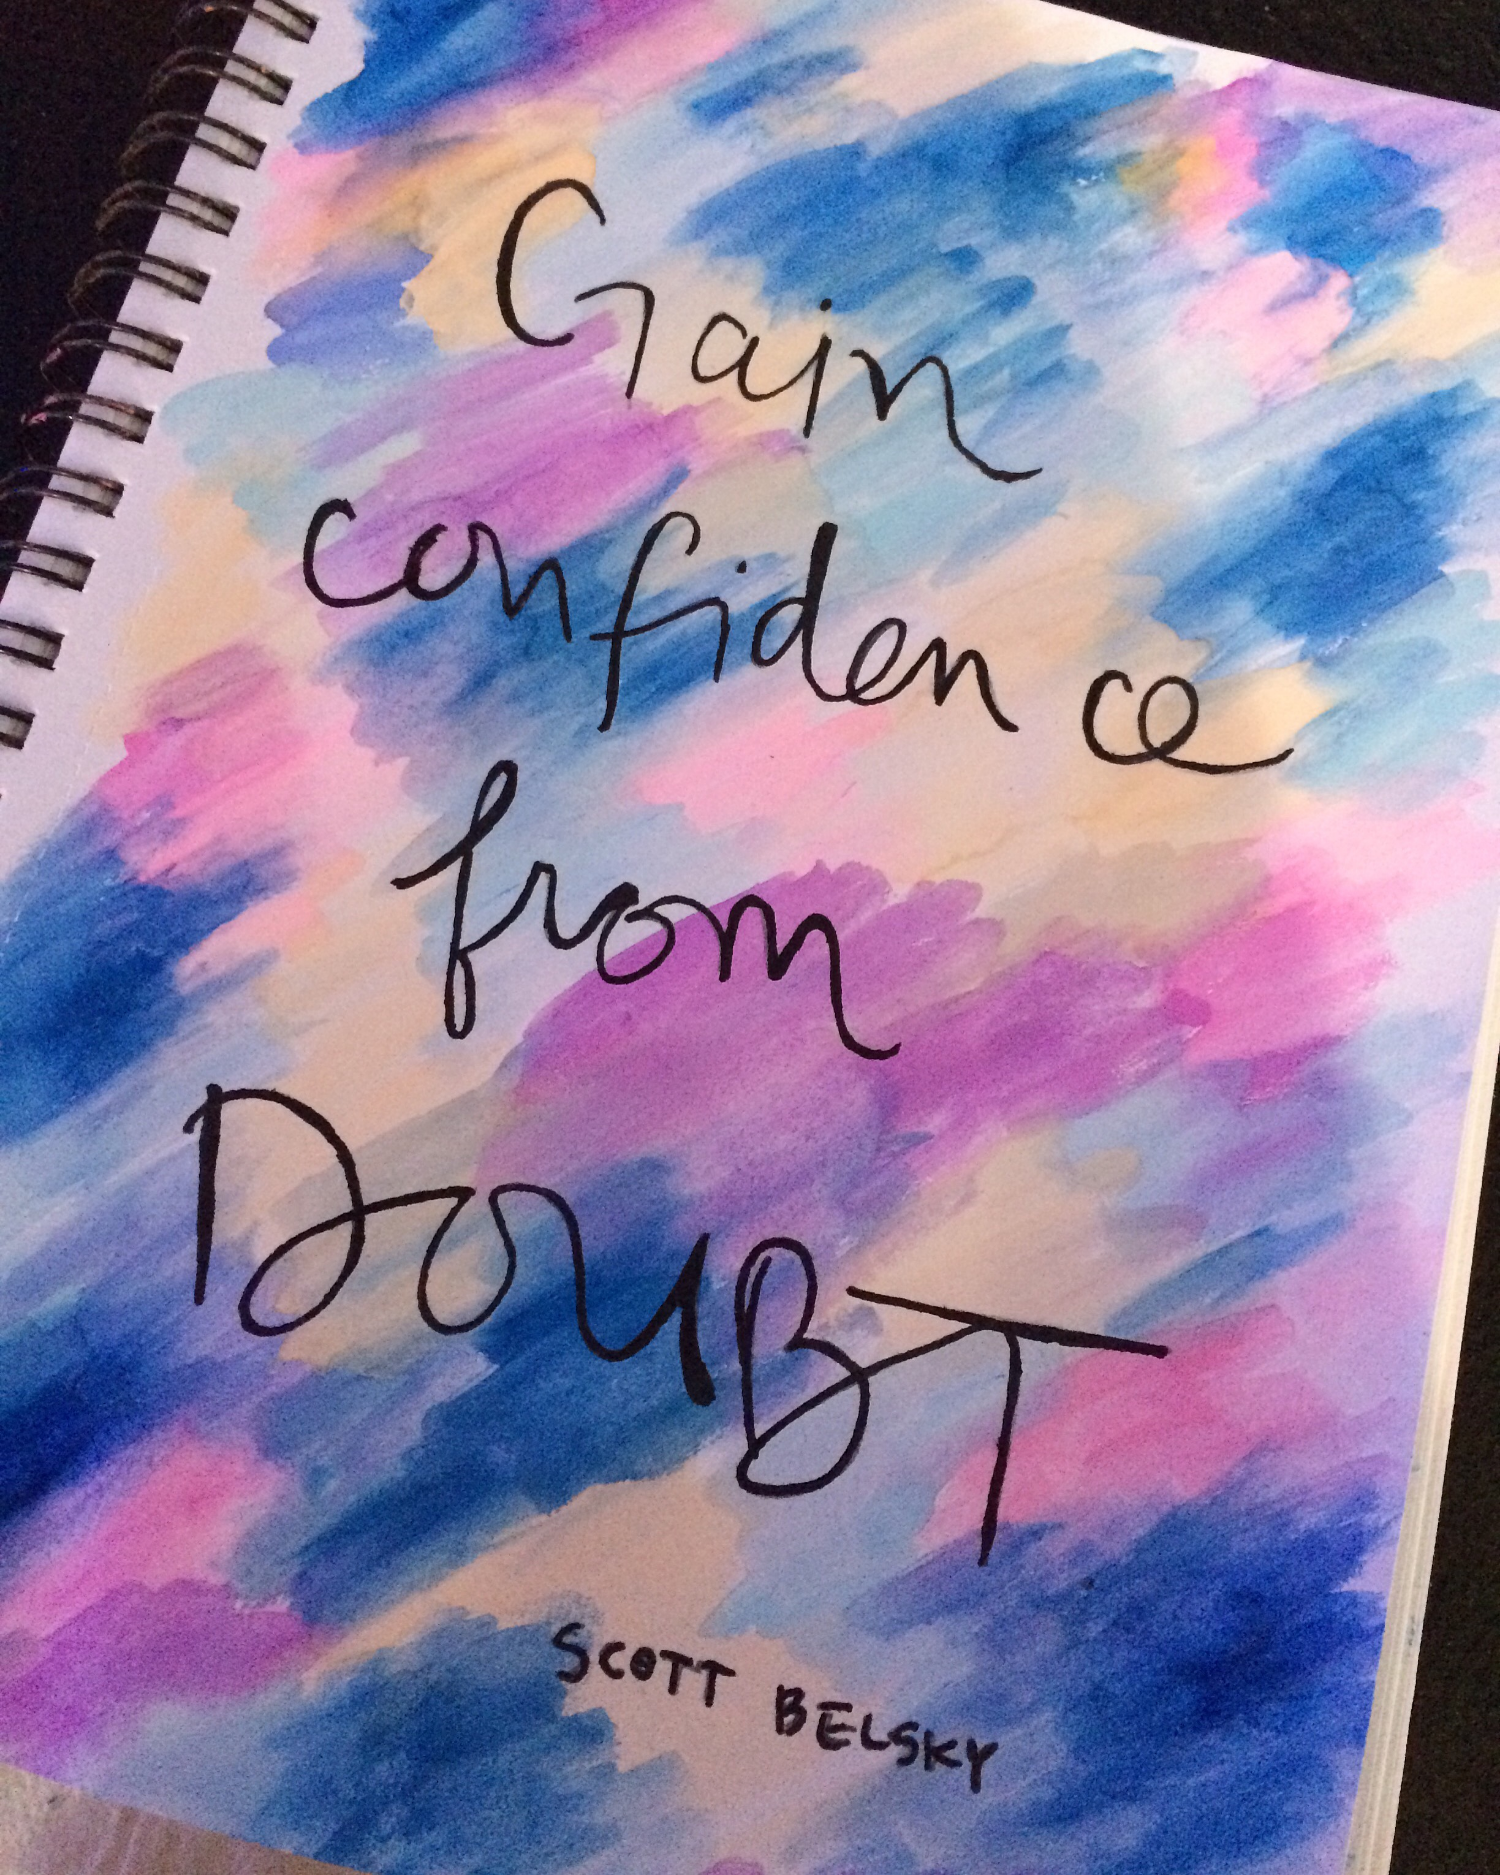 Gain
confidence
from
DOUBT
SCOTT BELSKY